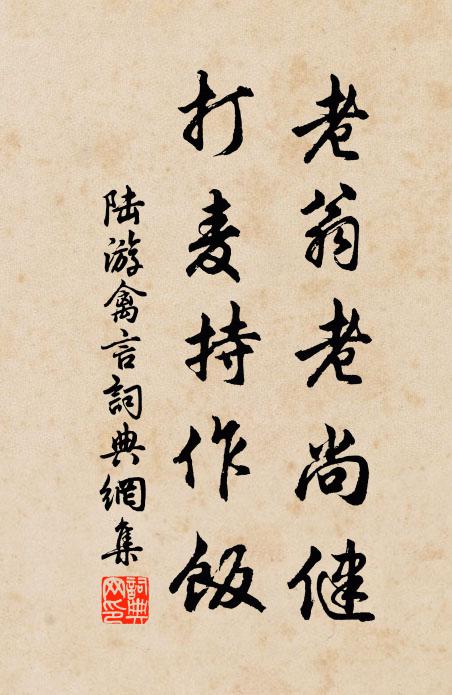 老翁老尚健
打麦持作飯
陆游禽言詞典網集
詞典网印